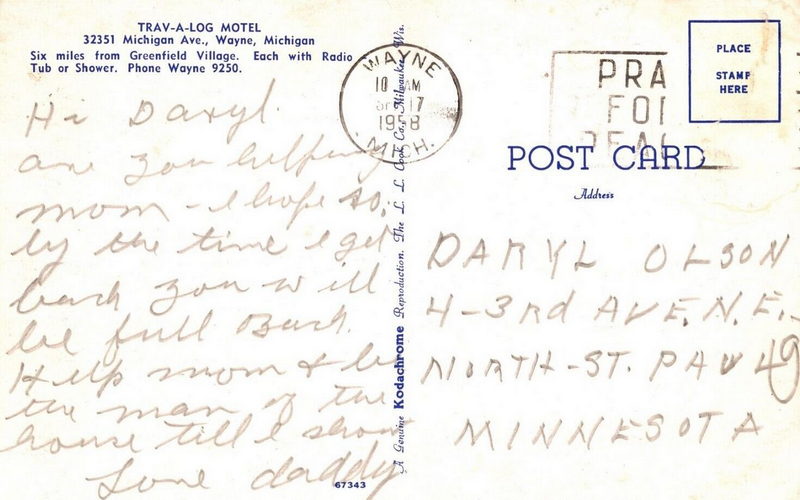 TRAV-A-LOG MOTEL
32351 Michigan Ave., Wayne, Michigan
Six miles from Greenfield Village. Each with Radio
Tub or Shower. Phone Wayne 9250.
Hi Daryl.
are you helping
mom - I hope so,
by the time I get
back you will
be full Back.
Help mom & be
the man of the
house till I show
Love daddy
67343
A Genuine Kodachrome Reproduction. The L. L. Cook Co., Milwaukee, Wis.
WAYNE
10 AM
17
1958
MICH.
PRA
FOR
PEAC
PLACE
STAMP
HERE
POST CARD
Address
DARYL OLSON
4-3rd AVE. N.E.
NORTH-ST. PAUL 49
MINNESOTA